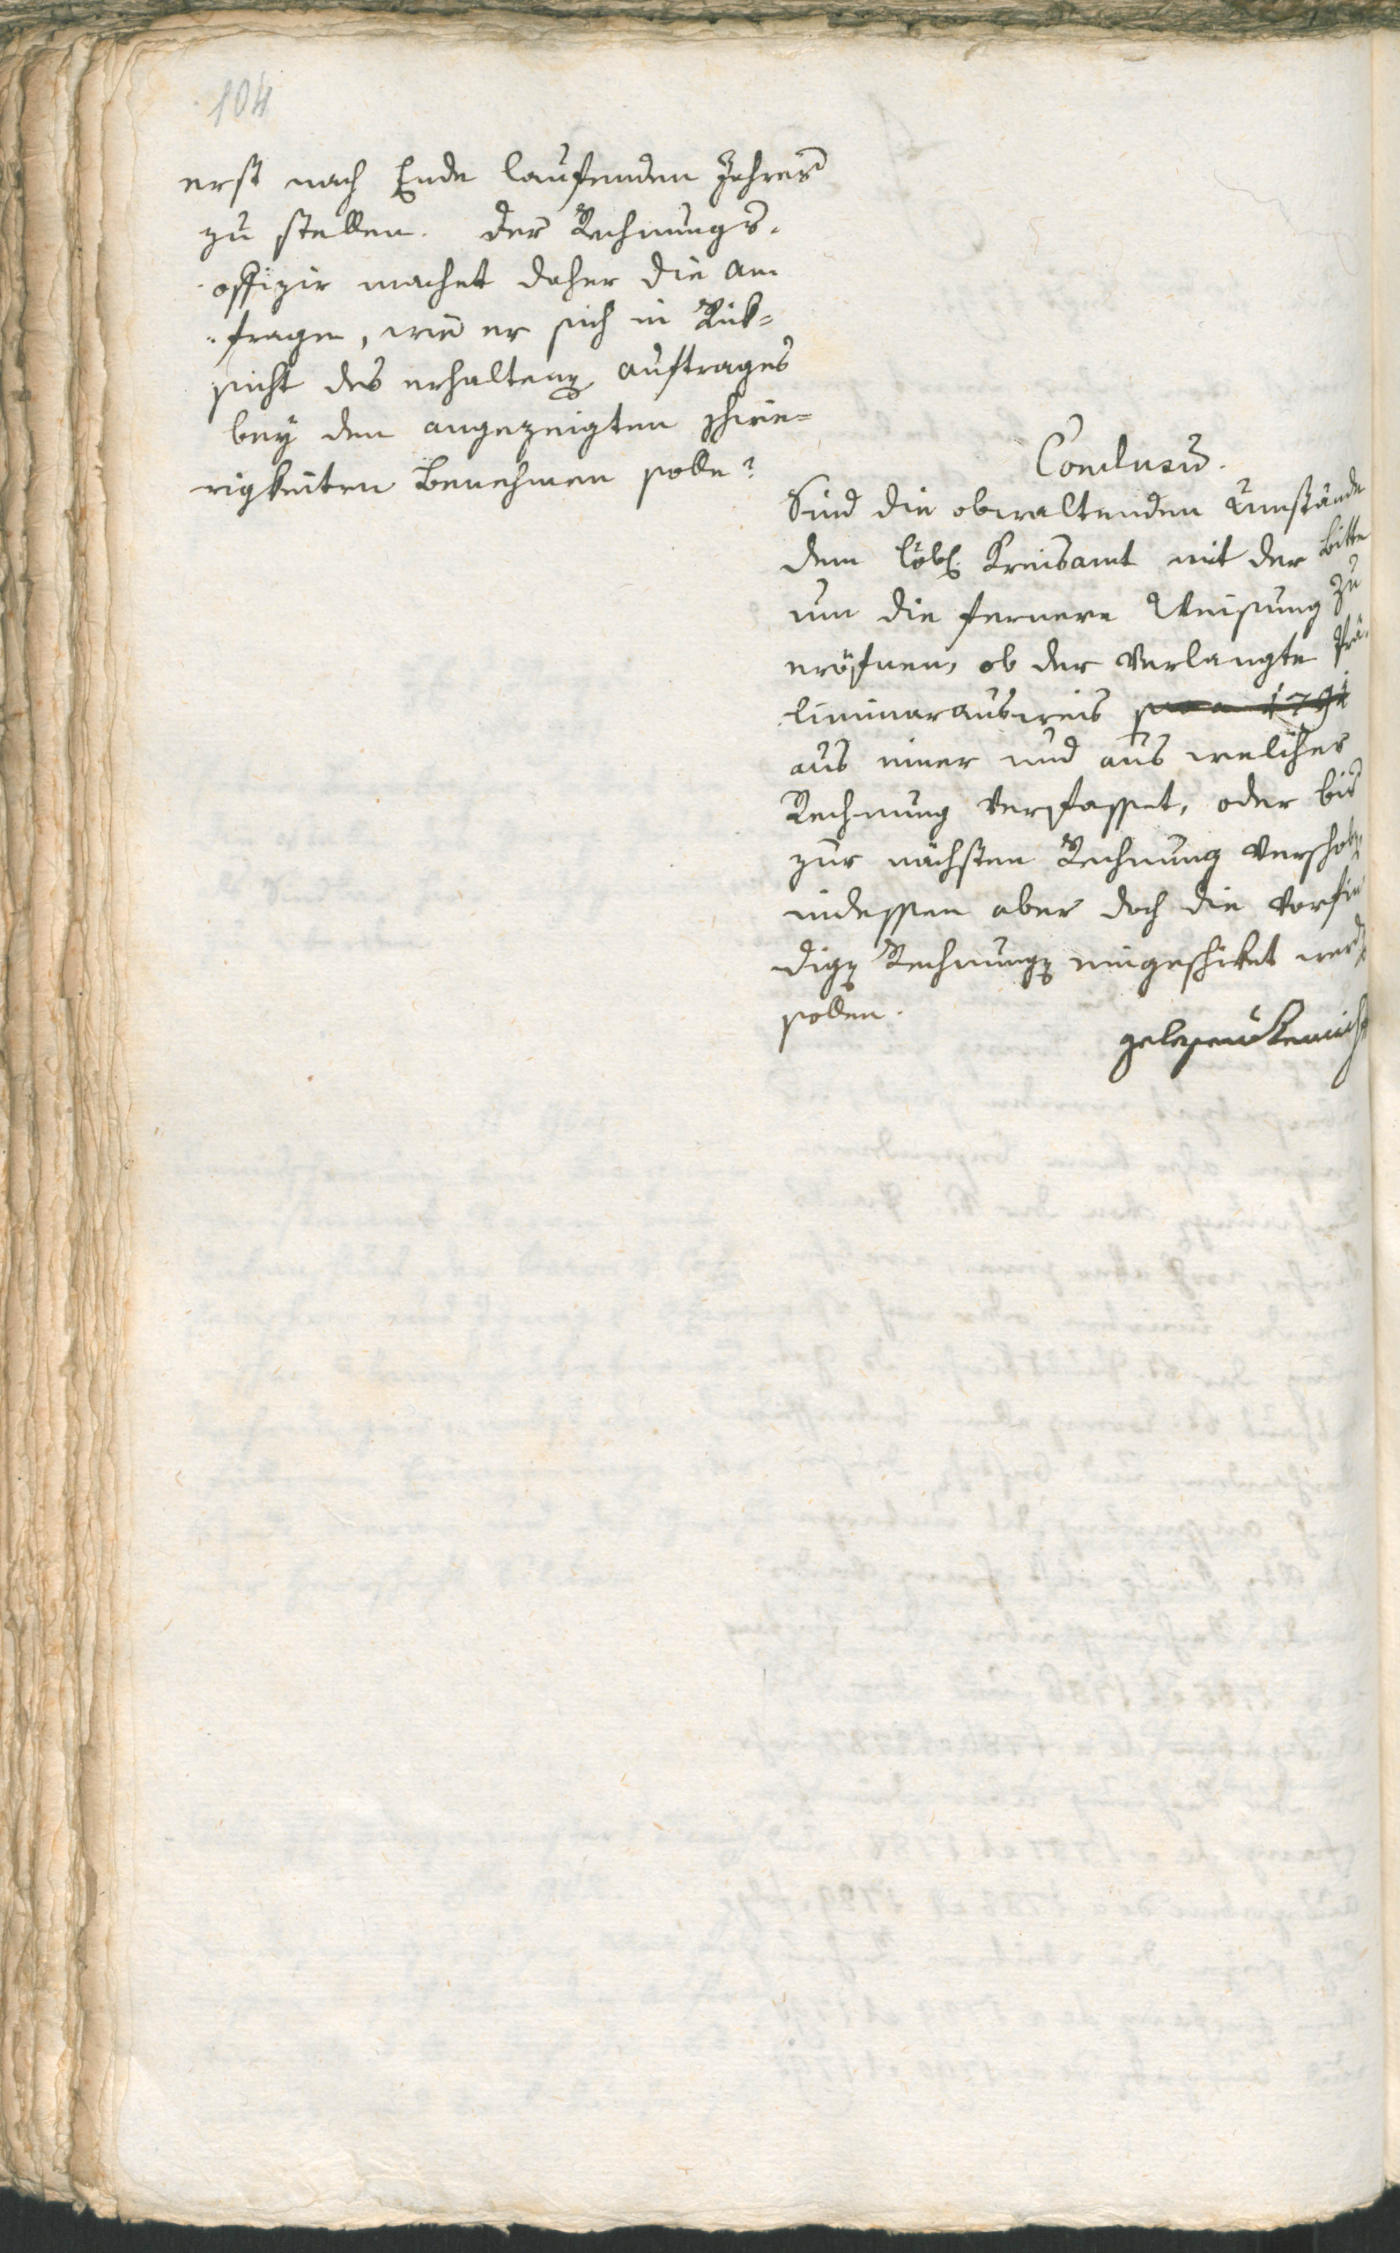 104
erst nach Ende laufenden Jahres
zu stellen. Der Rechnungs-
offizir machet daher die An-
frage, wie er sich in Rük=
sicht des erhalteng Auftrages
bey den angezeigten schwie=
rigkeiten Benehmen solle?
Conclusũ.
Sind die obwaltenden Umstände
dem Löbl. Kreisamt mit der Bitte
um die fernere Weisung zu
eröfnen, ob der Verlangte Prä-
liminarausweis pro a 1791
aus einer und aus welcher
Rechnung Verfasset, oder bis
zur nächsten Rechnung Verschob
indessen aber doch die Vorfin
dign Rechnungn eingeschiket werd
sollen.